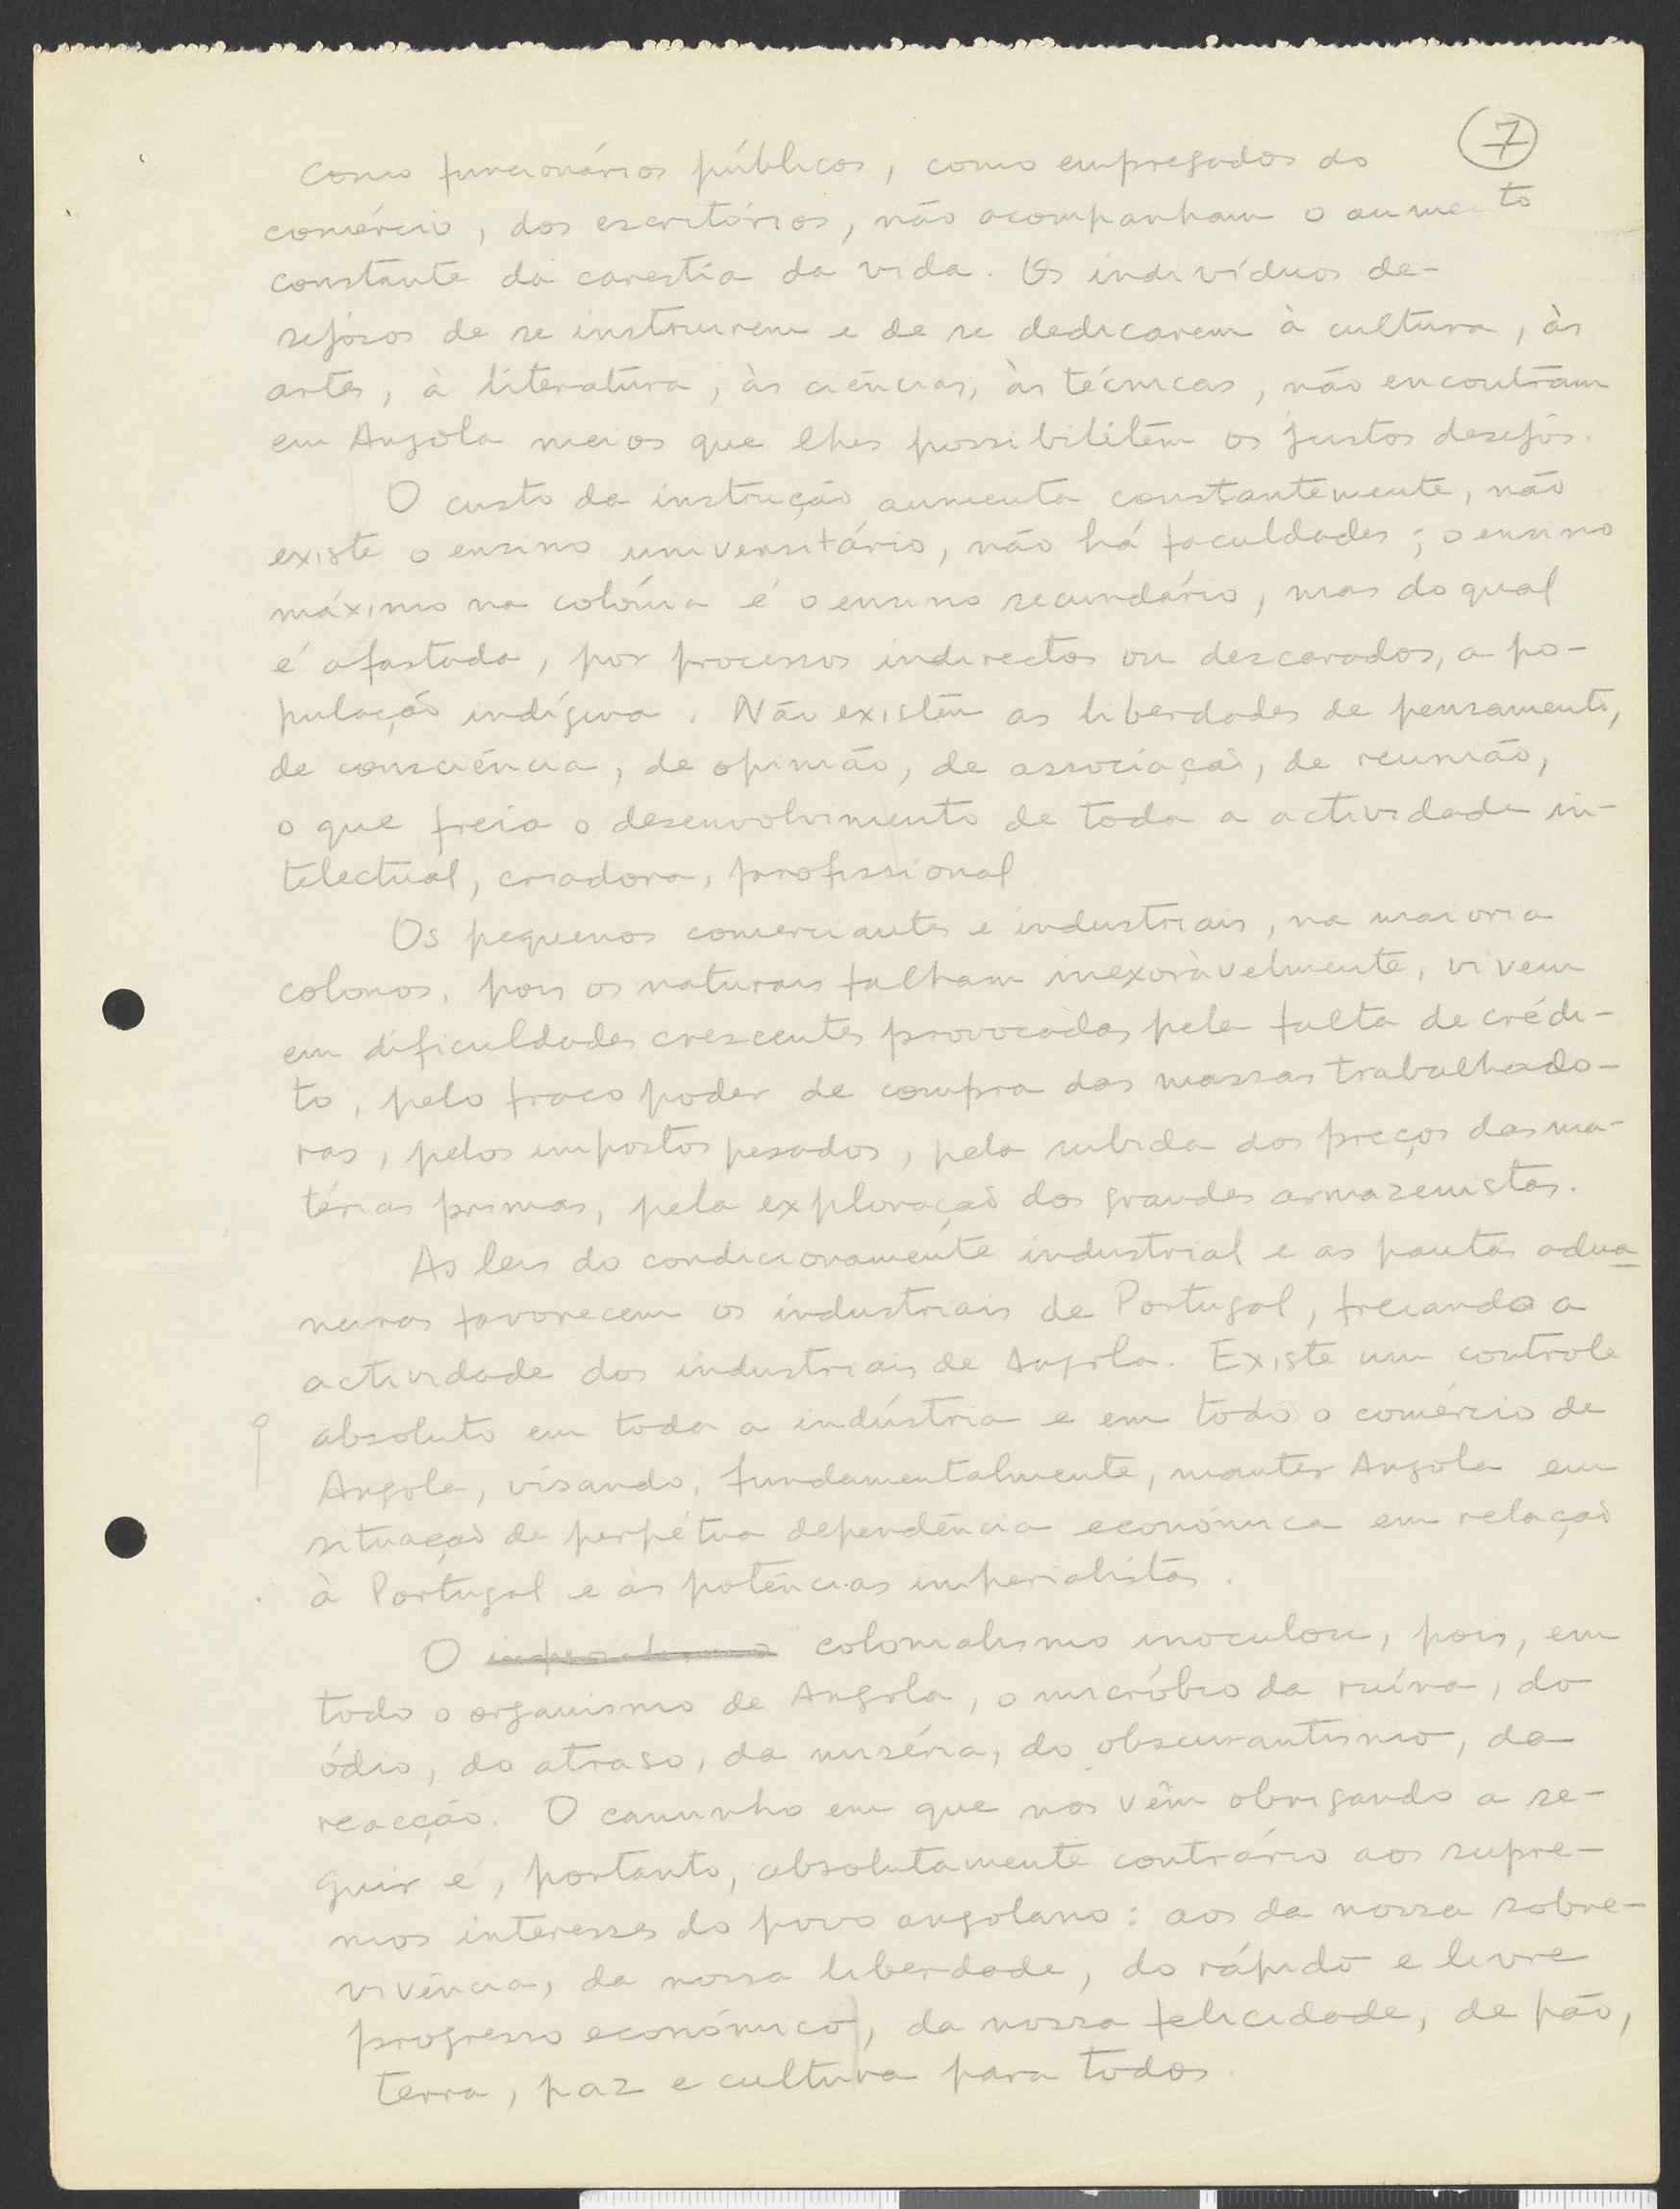 7
como funcionários públicos, como empregados do
comércio, dos escritórios, não acompanham o aumento
constante da carestia da vida. Os indivíduos de-
sejosos de se instruirem e de se dedicarem à cultura, às
artes, à literatura, às ciências, às técnicas, não encontram
em Angola meios que lhes possibilitem os justos desejos.
O custo da instrução aumenta constantemente, não
existe o ensino universitário, não há faculdades; o ensino
máximo na colónia é o ensino secundário, mas do qual
é afastada, por processos indirectos ou descarados, a po-
pulação indígena. Não existem as liberdades de pensamento,
de consciência, de opinião, de associação, de reunião,
o que freia o desenvolvimento de toda a actividade in-
telectual, criadora, profissional
Os pequenos comerciantes e industriais, na maioria
colonos, pois os naturais falham inexoràvelmente, vivem
em dificuldades crescentes provocadas pela falta de crédi-
to, pelo fraco poder de compra das massas trabalhado-
ras, pelos impostos pesados, pela subida dos preços das ma-
térias primas, pela exploração dos grandes armazenistas.
As leis do condicionamento industrial e as pautas adua
neiras favorecem os industriais de Portugal, freiando a
actividade dos industriais de Angola. Existe um controle
absoluto em toda a indústria e em todo o comércio de
Angola, visando, fundamentalmente, manter Angola em
situação de perpétua dependência económica em relação
à Portugal e às potências imperialistas.
O imperialismo colonialismo inoculou, pois, em
todo o organismo de Angola, o micróbio da ruína, do
ódio, do atraso, da miséria, do obscurantismo, da
reacção. O caminho em que nos vêm obrigando a se-
guir é, portanto, absolutamente contrário aos supre-
mos interesses do povo angolano: aos da nossa sobre-
vivência, da nossa liberdade, do rápido e livre
progresso económico, da nossa felicidade, de pão,
terra, paz e cultura para todos.